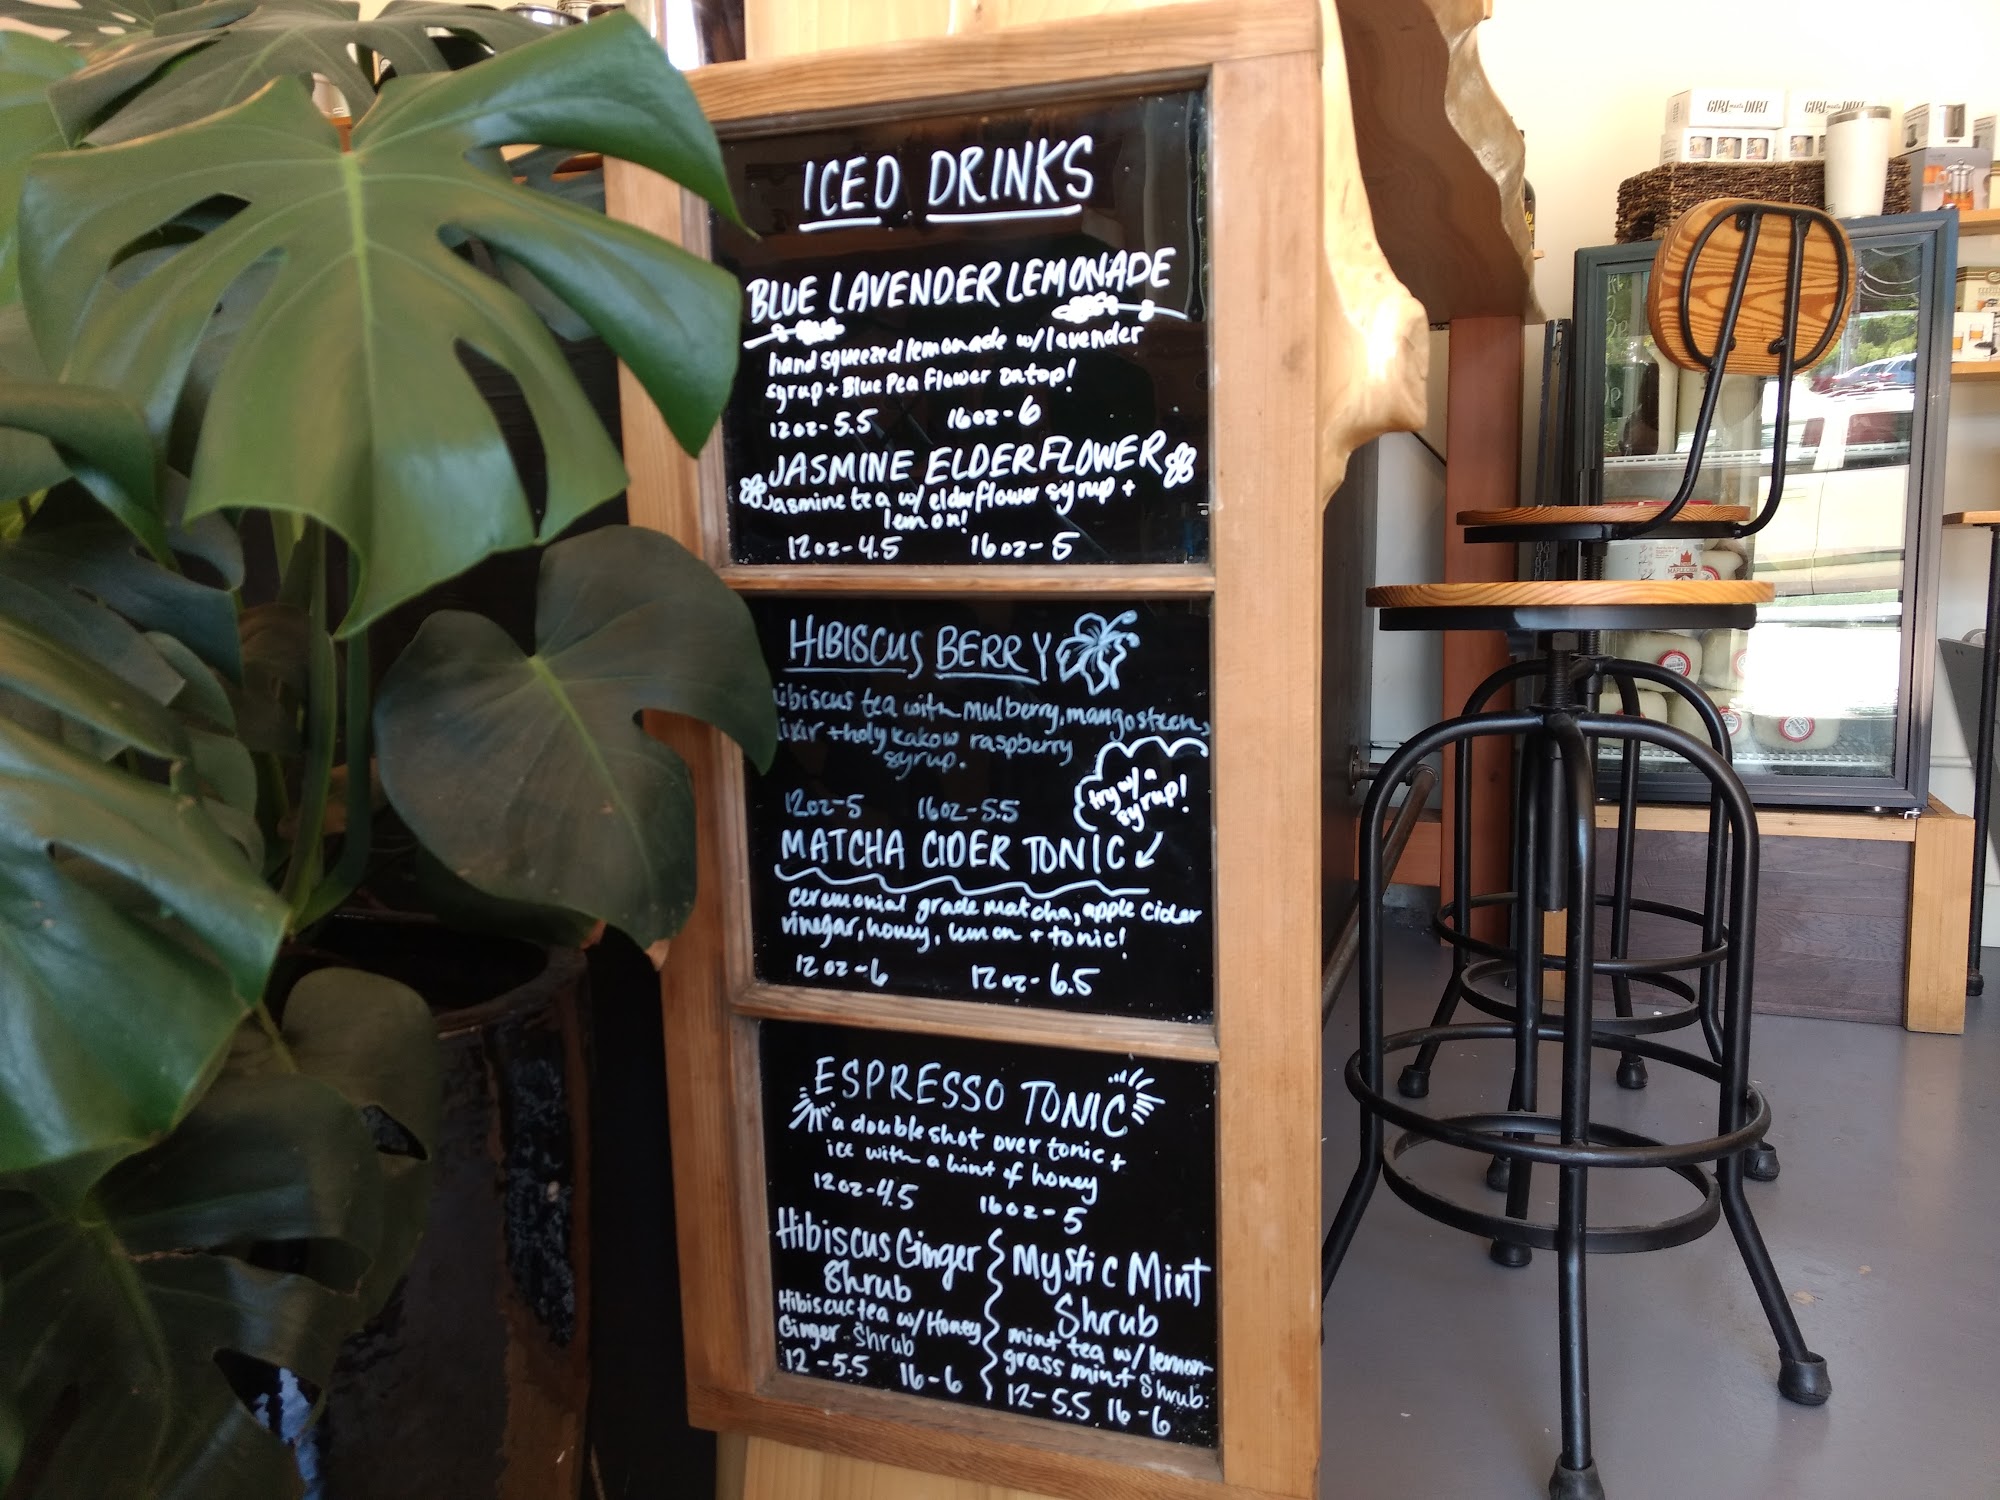 ICED DRINKS
BLUE LAVENDER LEMONADE
hand squeezed lemonade w/ lavender
syrup + Blue Pea Flower on top!
12oz - 5.5 16oz - 6
JASMINE ELDERFLOWER
Jasmine tea w/ elderflower syrup +
lemon!
12oz - 4.5 16oz - 5
HIBISCUS BERRY
ibiscus tea with mulberry, mangosteen,
lixir + holy kakow raspberry
syrup.
12oz - 5 16oz - 5.5
try w/ a
syrup!
MATCHA CIDER TONIC
ceremonial grade matcha, apple cider
vinegar, honey, lemon + tonic!
12oz - 6 12oz - 6.5
ESPRESSO TONIC
a double shot over tonic +
ice with a hint of honey
12oz - 4.5 16oz - 5
Hibiscus Ginger
Shrub
Hibiscus tea w/ Honey
Ginger Shrub
12 - 5.5 16 - 6
Mystic Mint
Shrub
mint tea w/ lemon
grass mint Shrub.
12 - 5.5 16 - 6
GIRL meets DIRT
GIRL meets DIRT